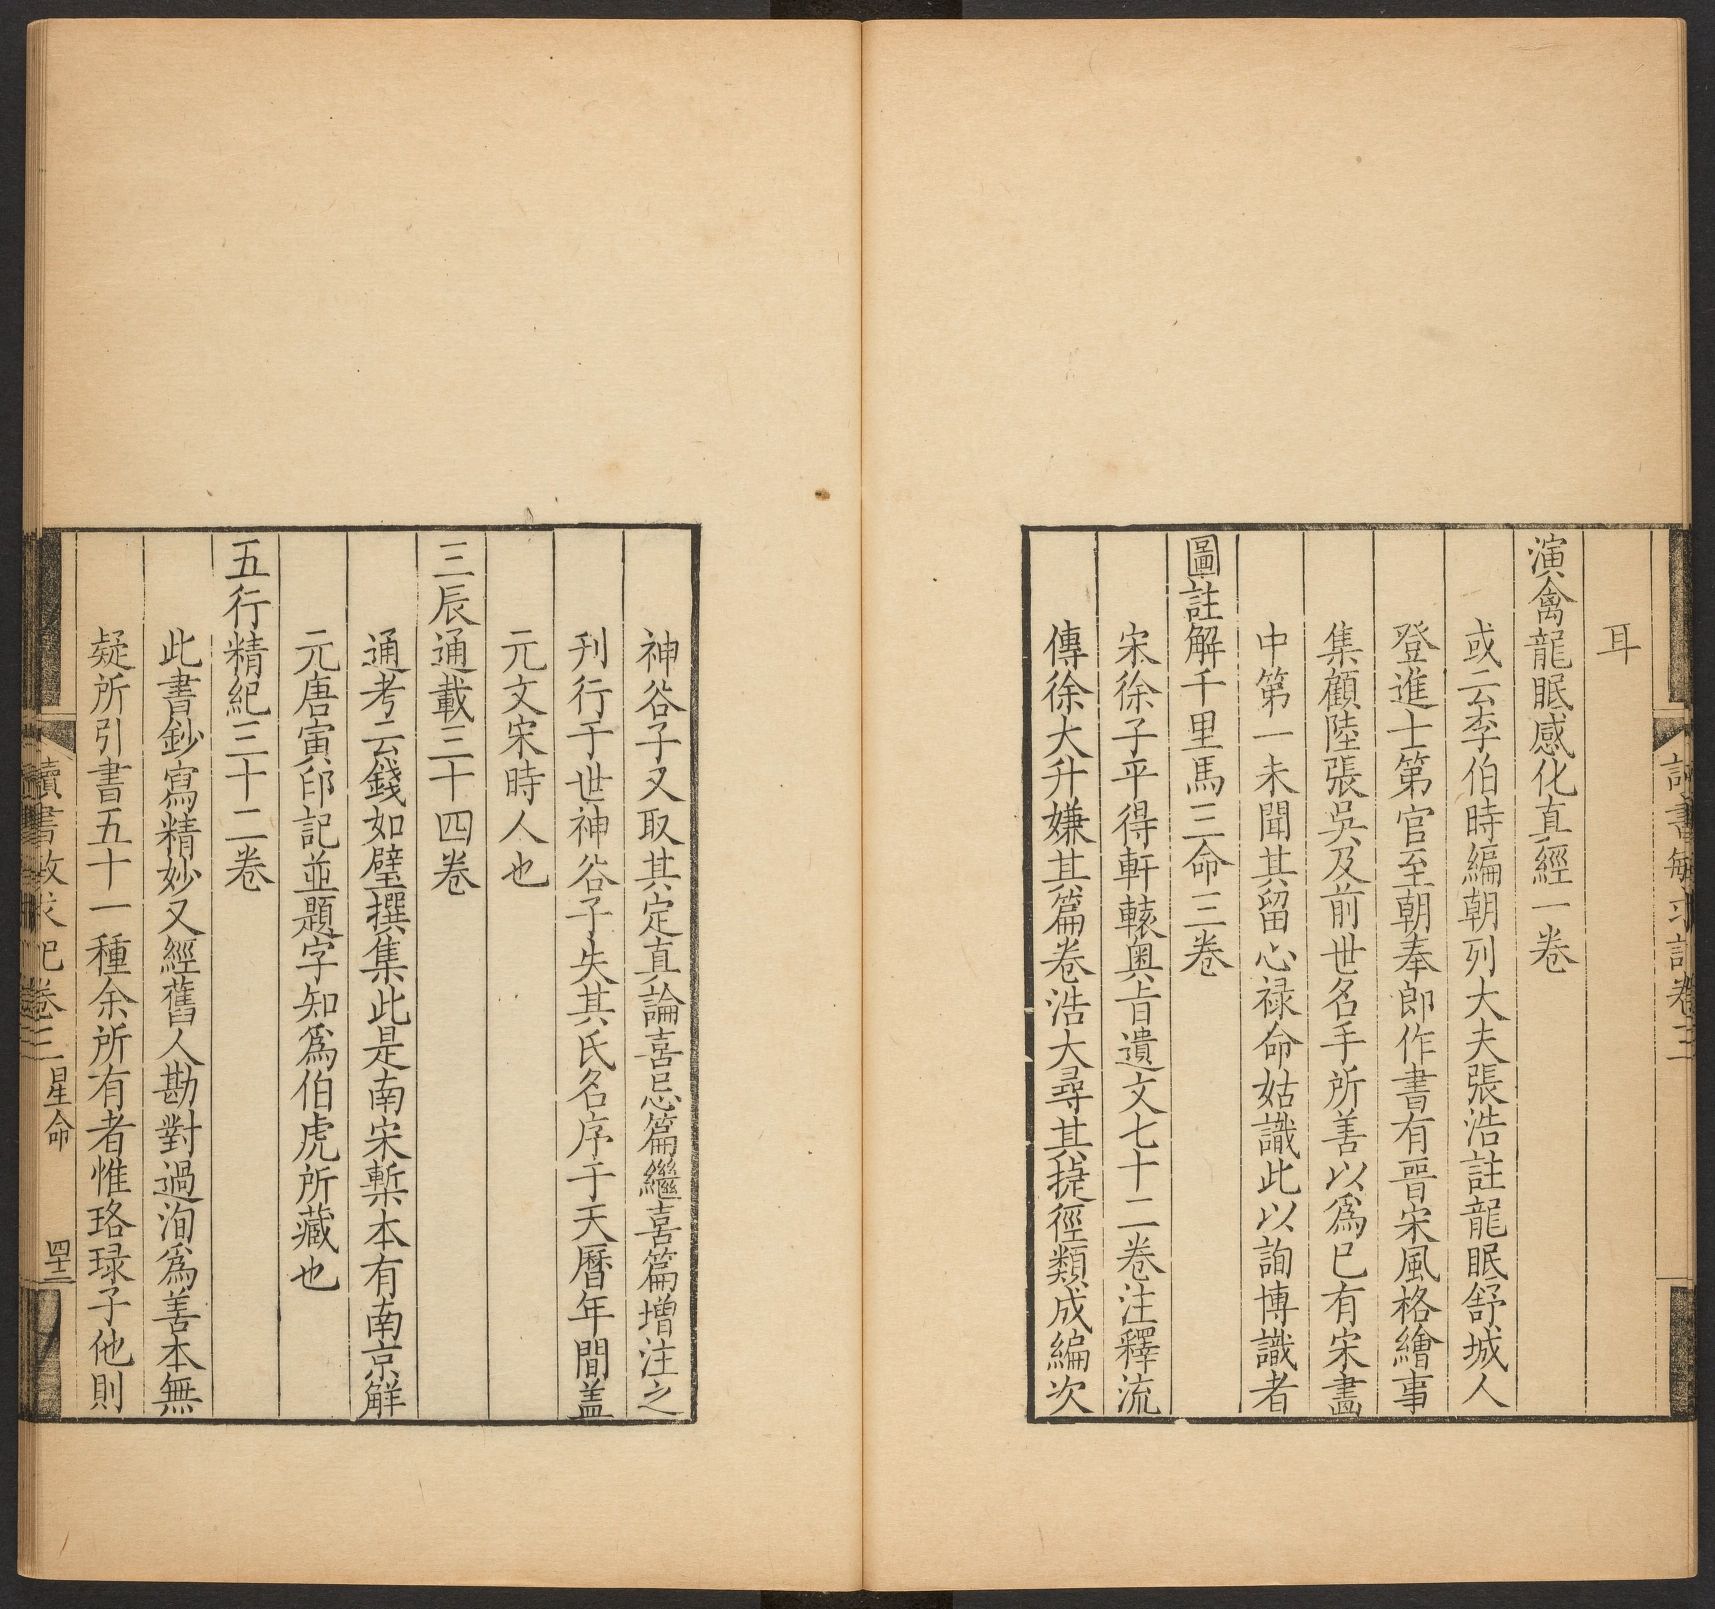 耳
演禽龍眠感化真經一卷
或云李伯時編朝列大夫張浩註龍眠舒城人
登進士第官至朝奉郎作書有晉宋風格繪事
集顧陸張吳及前世名手所善以爲已有宋畵
中第一未聞其留心禄命姑識此以詢博識者
圖註解千里馬三命三卷
宋徐子平得軒轅奥旨遺文七十二卷注釋流
傳徐大升嫌其篇卷浩大尋其捷徑類成編次
神谷子又取其定真論喜忌篇繼喜篇增注之
刋行于世神谷子失其氏名序于天曆年間盖
元文宋時人也
三辰通載三十四卷
通考云錢如璧撰集此是南宋槧本有南京解
元唐寅印記並題字知爲伯虎所藏也
五行精紀三十二卷
此書鈔寫精妙又經舊人勘對過洵爲善本無
疑所引書五十一種余所有者惟珞琭子他則
讀書敏求記卷三 星命 四十三